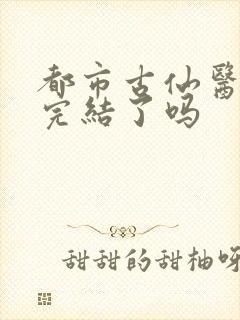 都市古仙醫
完結了吗
甜甜的甜柚呀